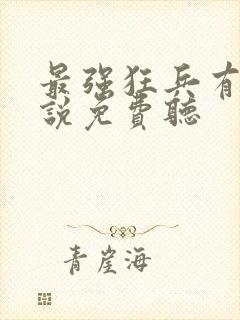 最强狂兵有
說免費聽
青崖海